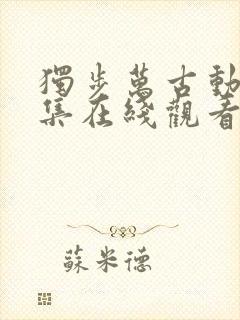 獨步萬古動
集在綫觀看
蘇米德